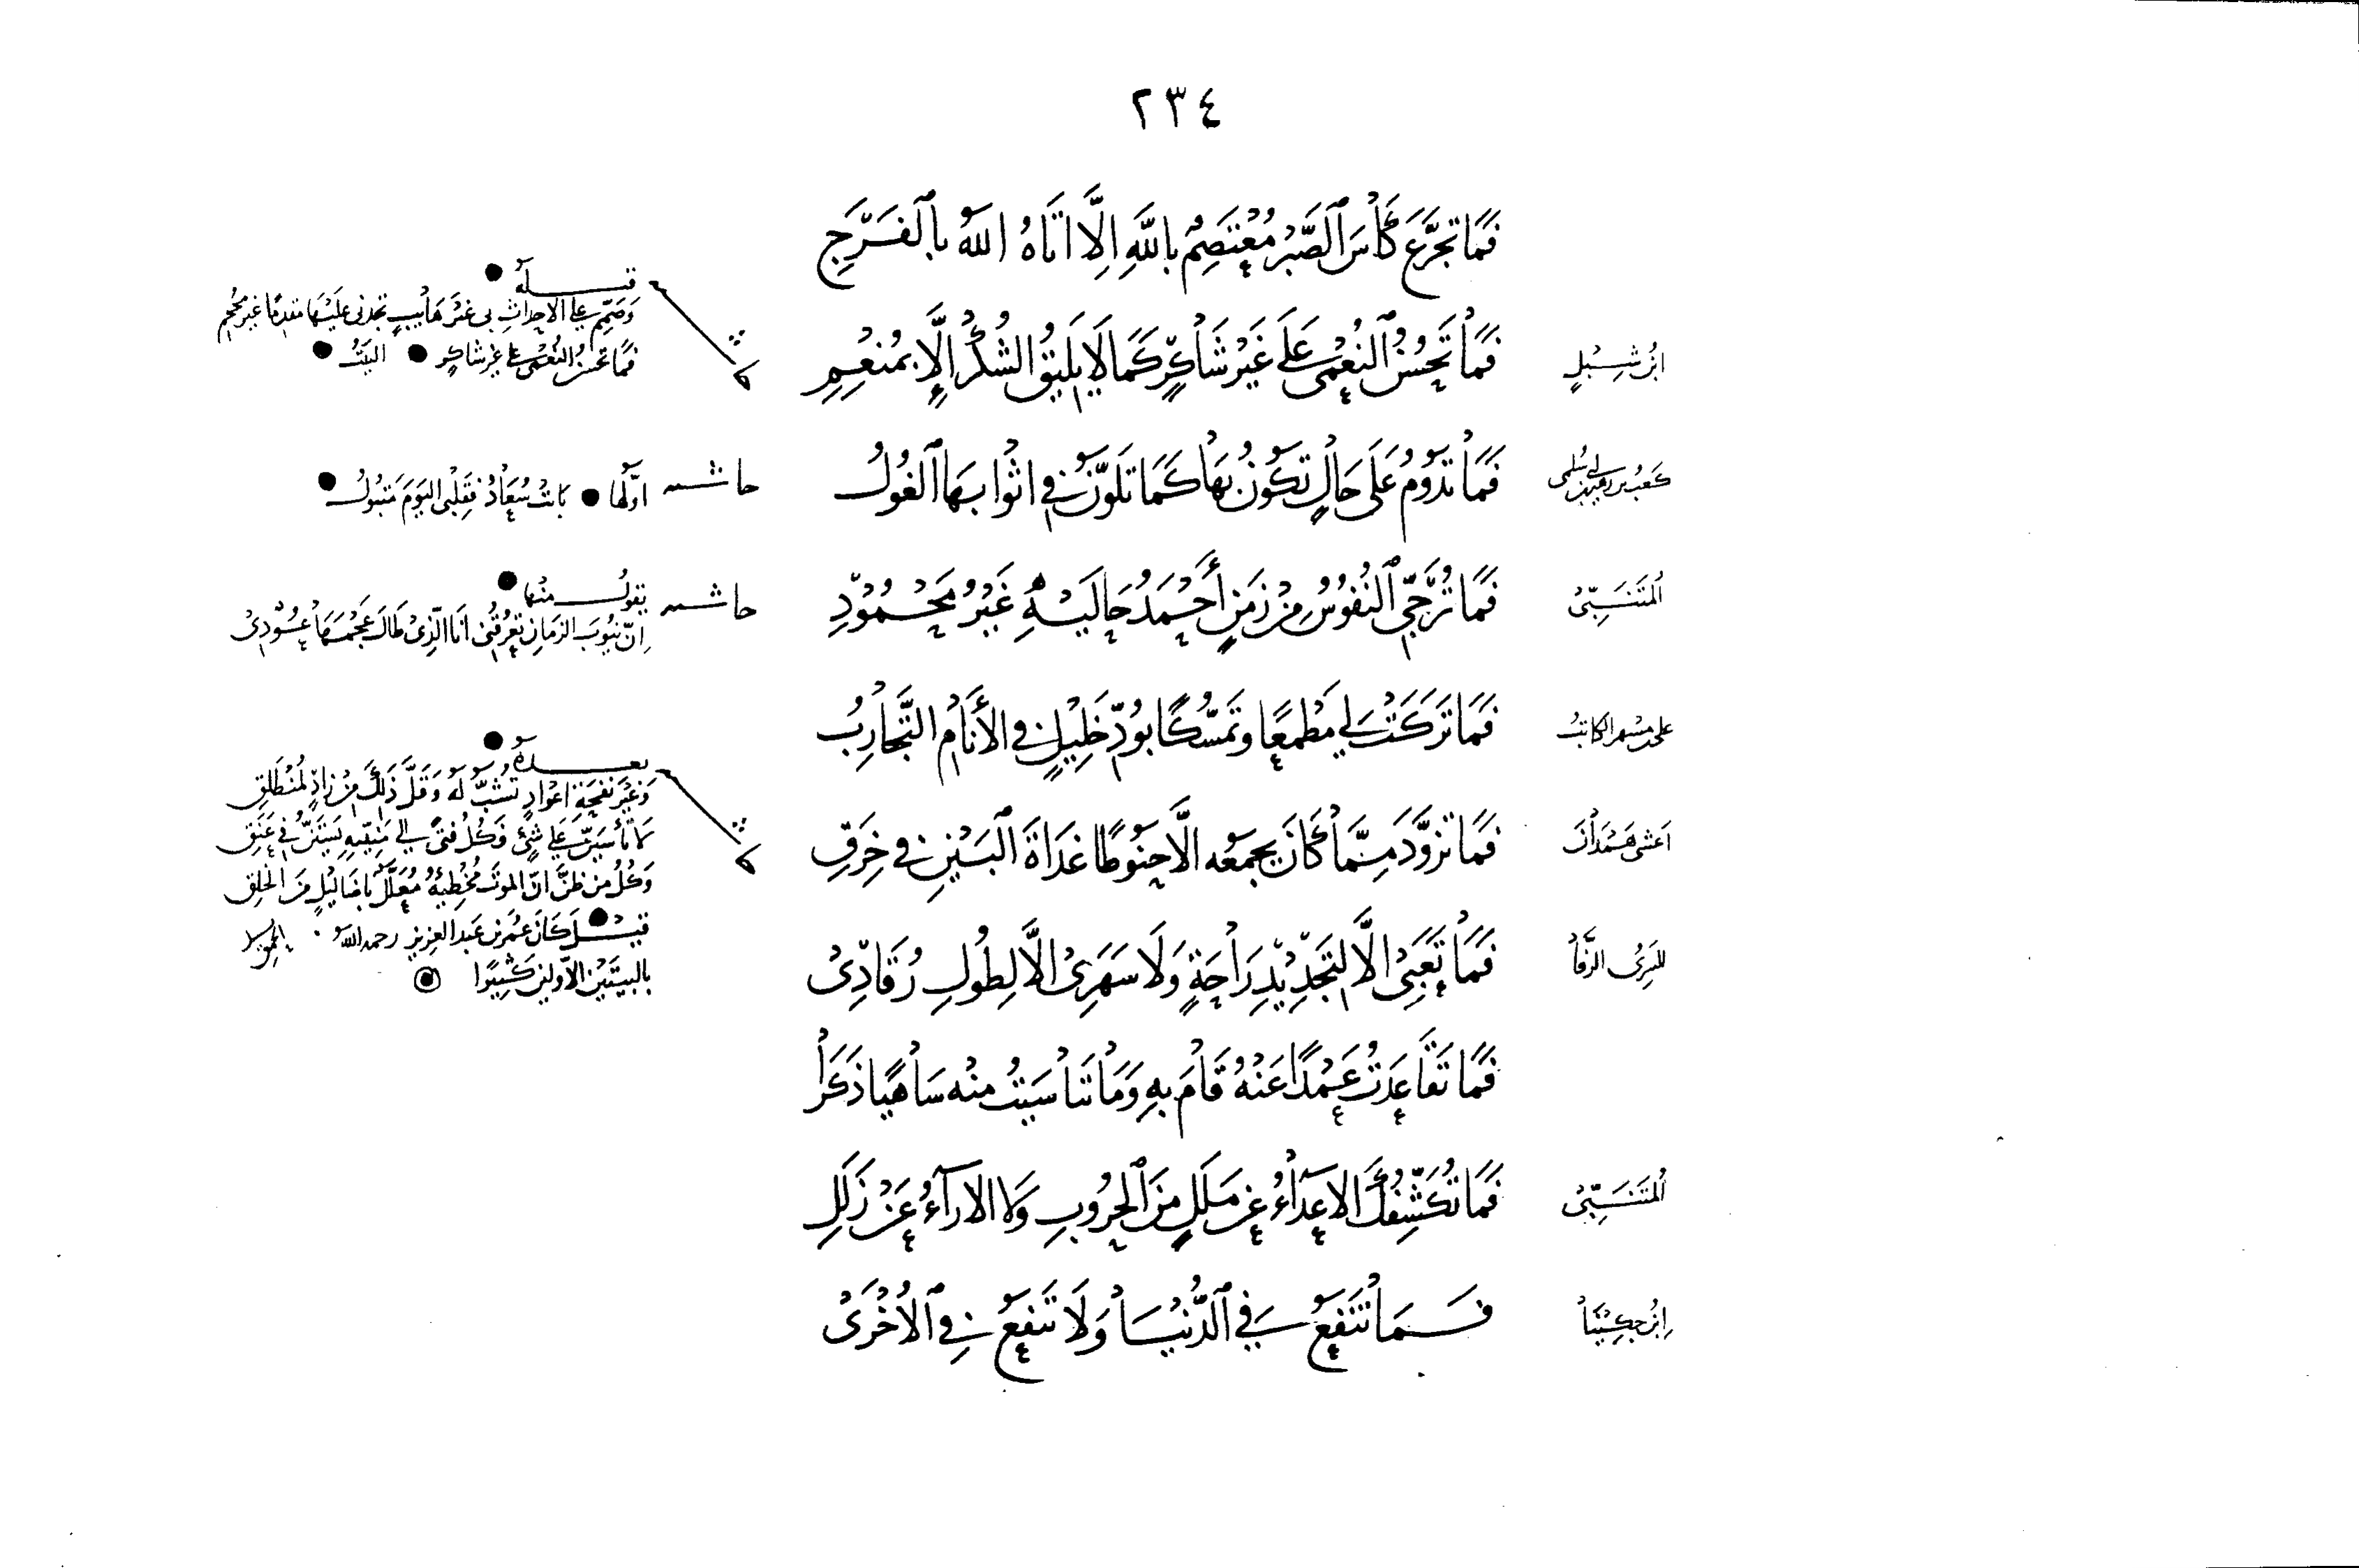 ٢٣٤
فَمَا تَجَرَّعَ كَأْسَ الصَّبْرِ مُعْتَصِمٌ بِاللَّهِ إِلَّا أَتَاهُ اللهُ بِالفَرَجِ
ابْنُ شِبْلٍ
فَمَا تَحْسُنُ النُّعْمَى عَلَى غَيْرِ شَاكِرٍ كَمَا لَا يَلِيقُ الشُّكْرُ إِلَّا بِمُنْعِمِ
قبله
وَصَمِّمْ على الاحداثِ بي غَيْرَ هَائِبٍ تجدني عَلَيْهَا مقدمًا غير محجم
فَمَا تحسنُ النُّعْمَى على غير شاكرٍ البَيْتُ
كَعْبُ بن زهير بن أبي سُلمى
فَمَا تَدُوْمُ عَلَى حَالٍ تَكُوْنُ بِهَا كَمَا تَلَوَّنُ فِي اثْوابِهَا الغُولُ
حاشية اوّلها بانتْ سُعَادُ فقَلْبِي اليَوْمَ مَتْبُولُ
المُتَنَبِّيْ
فَمَا تُرَجِّي النُّفُوْسُ مِنْ زَمَنٍ أَحْمَدُ حَالَيْهِ غَيْرُ مَحْمُوْدِ
حاشية يقولُ منها
اِنَّ نيُوبَ الزمَانِ تَعْرُفُنِي انَا الَّذِيْ طَالَ عَجْمُهَا عُوْدِيْ
على مسهر الكاتبُ
فَمَا تَرَكَتْ لِي مَطْمَعًا وتَمَسُّكًا بوُدِّ خَلِيْلٍ في الأَنَامِ التَّجَارِبُ
اعشى هَمْدَانَ
فَمَا تزوَّدَ مِمَّا كَانَ يجمعُه الَّا حنُوطًا غَدَاةَ البَيْنِ في خِرَقِ
بعده
وَغَيْرَ نفحَةِ اعْوادٍ تُشَبُّ لَهُ وَقَلَّ ذَلِكَ مِنْ زادٍ لمُنْطَلِقِ
لا تأسَيَنَّ عَلى شيْءٍ فَكُلُّ فتىً إلى مَنيّتِهِ يَسْتَنُّ في عَنَقِ
وَكُلُّ من ظَنَّ انَّ الموتَ مُخْطِيهُ مُعَلَّلٌ بِاضَالِيْلٍ مِنَ
قيلَ كَانَ عُمَرُ بن عَبد العَزِيزِ رحمه الله
بالبَيْتَيْنِ الأوّلينِ كَثِيْرًا
للسَّرِيِّ الرَّفَّا
فَمَا تَعَبِيْ الَّا لتَجْدِيْدِ رَاحَةٍ وَلَا سَهَرِيْ الَّا لِطُولِ رُقَادِيْ
فَمَا تَقَاعَدْتُ عَمْدًا عَنْهُ قَامَ بِهِ وَمَا تَنَاسَيْتُ منْه سَاهِيًا ذَكَرَا
المُتَنَبِّيْ
فَمَا تُكَشِّفُكَ الاعْدَاءُ عَنْ مَلَلٍ مِنَ الحُرُوبِ وَلا الارآءُ عَنْ زَلَلِ
ابْنُ جكِّيْنَا
فَمَا تَنْفَعُ فِي الدُّنْيَا وَلَا تَنْفَعُ فِي الأُخْرَىْ